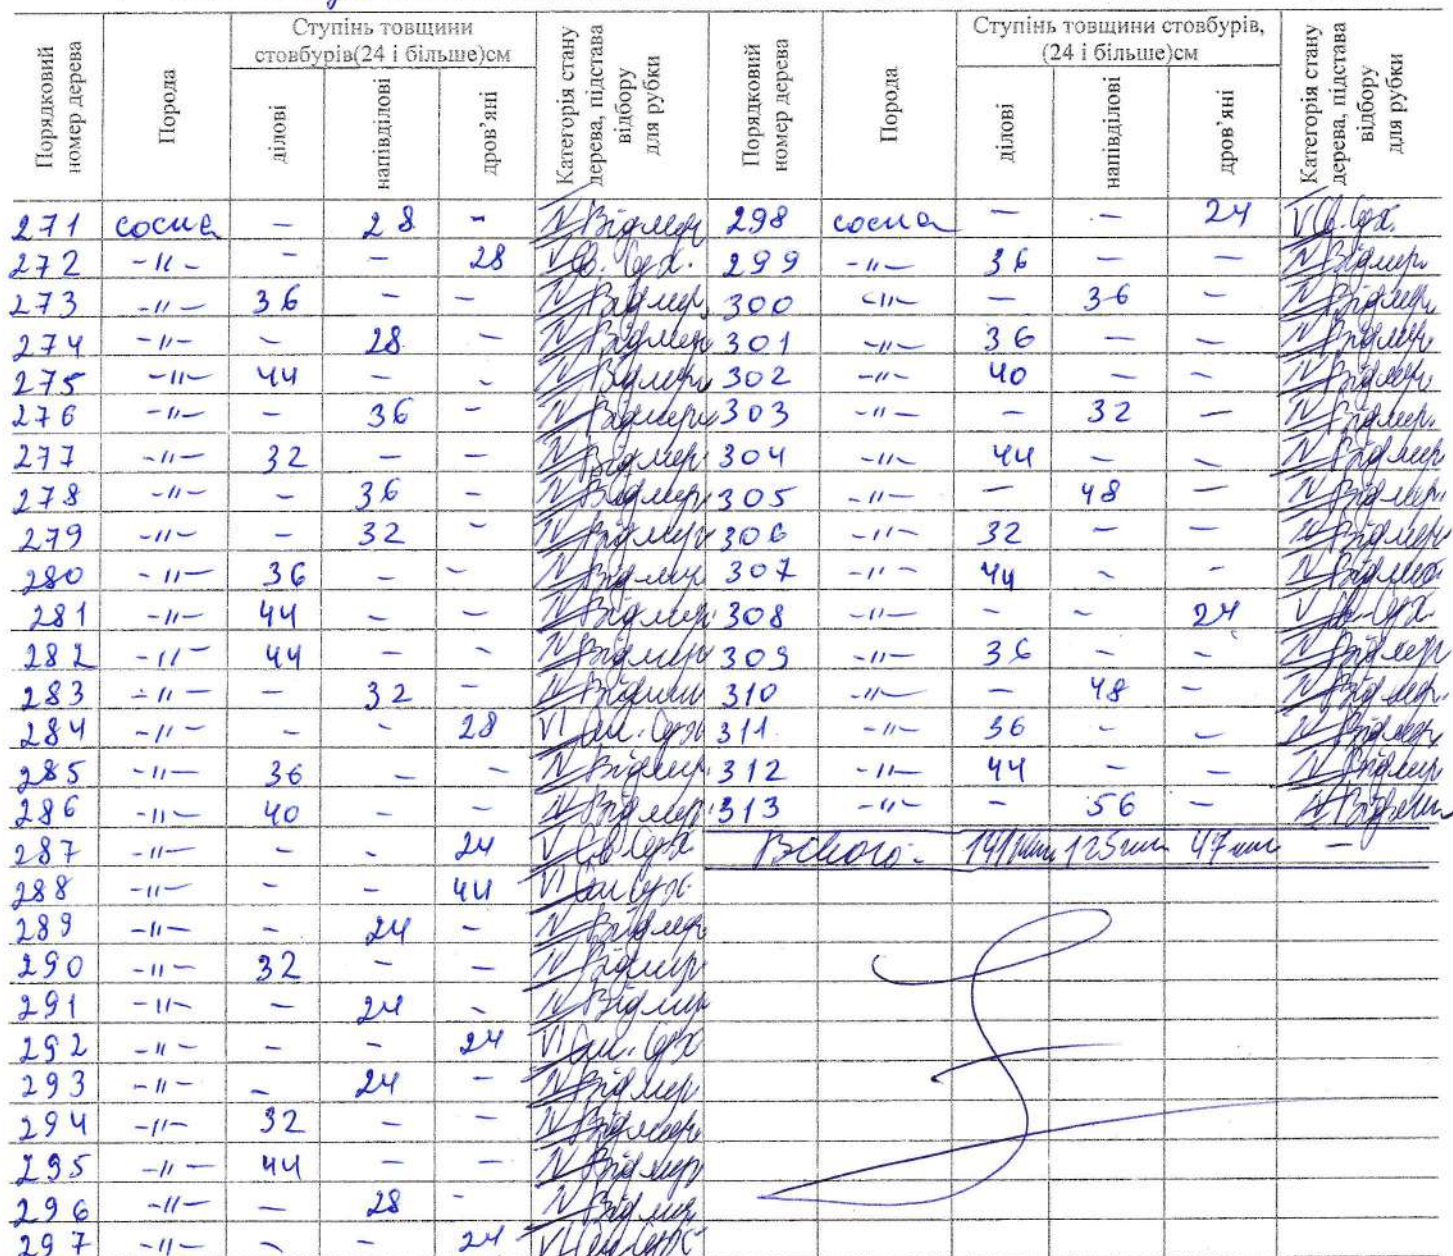 Порядковий номер дерева | Порода | Ступінь товщини стовбурів(24 і більше)см | ділові | напівділові | дров'яні | Категорія стану дерева, підстава відбору для рубки | Порядковий номер дерева | Порода | Ступінь товщини стовбурів, (24 і більше)см | ділові | напівділові | дров'яні | Категорія стану дерева, підстава відбору для рубки
271 сосна – 28 – IV Відмер 298 сосна – – 24 V Св. Сух.
272 -"- – – 28 V Св. Сух. 299 -"- 36 – – IV Відмер.
273 -"- 36 – – IV Відмер. 300 -"- – 36 – IV Відмер.
274 -"- – 28 – IV Відмер 301 -"- 36 – – IV Відмер.
275 -"- 44 – – IV Відмер. 302 -"- 40 – – IV Відмер.
276 -"- – 36 – IV Відмер 303 -"- – 32 – IV Відмер.
277 -"- 32 – – IV Відмер. 304 -"- 44 – – IV Відмер
278 -"- – 36 – IV Відмер. 305 -"- – 48 – IV Відмер.
279 -"- – 32 – IV Відмер. 306 -"- 32 – – IV Відмер.
280 -"- 36 – – IV Відмер 307 -"- 44 – – IV Відмер.
281 -"- 44 – – IV Відмер. 308 -"- – – 24 V Св. Сух
282 -"- 44 – – IV Відмер 309 -"- 36 – – IV Відмер
283 -"- – 32 – IV Відмер 310 -"- – 48 – IV Відмер.
284 -"- – – 28 VI Ст. Сух 311 -"- 36 – – IV Відмер.
285 -"- 36 – – IV Відмер. 312 -"- 44 – – IV Відмер
286 -"- 40 – – IV Відмер. 313 -"- – 56 – IV Відмер
287 -"- – – 24 V Св Сух Всього- 141шт 125шт 47шт –
288 -"- – – 44 VI Ст Сух.
289 -"- – 24 – IV Відмер
290 -"- 32 – – IV Відмер
291 -"- – 24 – IV Відмер
292 -"- – – 24 VI Ст. Сух
293 -"- – 24 – IV Відмер
294 -"- 32 – – IV Відмер.
295 -"- 44 – – IV Відмер
296 -"- – 28 – IV Відмер
297 -"- – – 24 VI Ст Сух